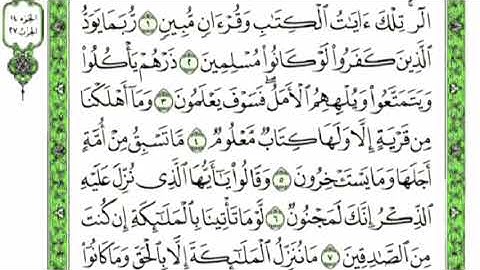 الجزء ١٤
الحزب ٢٧
الٓر ۚ تِلْكَ ءَايَٰتُ ٱلْكِتَٰبِ وَقُرْءَانٍ مُّبِينٍ ١ رُّبَمَا يَوَدُّ
ٱلَّذِينَ كَفَرُوا۟ لَوْ كَانُوا۟ مُسْلِمِينَ ٢ ذَرْهُمْ يَأْكُلُوا۟
وَيَتَمَتَّعُوا۟ وَيُلْهِهِمُ ٱلْأَمَلُ ۖ فَسَوْفَ يَعْلَمُونَ ٣ وَمَآ أَهْلَكْنَا
مِن قَرْيَةٍ إِلَّا وَلَهَا كِتَابٌ مَّعْلُومٌ ٤ مَّا تَسْبِقُ مِنْ أُمَّةٍ
أَجَلَهَا وَمَا يَسْتَـْٔخِرُونَ ٥ وَقَالُوا۟ يَٰٓأَيُّهَا ٱلَّذِى نُزِّلَ عَلَيْهِ
ٱلذِّكْرُ إِنَّكَ لَمَجْنُونٌ ٦ لَّوْ مَا تَأْتِينَا بِٱلْمَلَٰٓئِكَةِ إِن كُنتَ
مِنَ ٱلصَّٰدِقِينَ ٧ مَا نُنَزِّلُ ٱلْمَلَٰٓئِكَةَ إِلَّا بِٱلْحَقِّ وَمَا كَانُوٓا۟